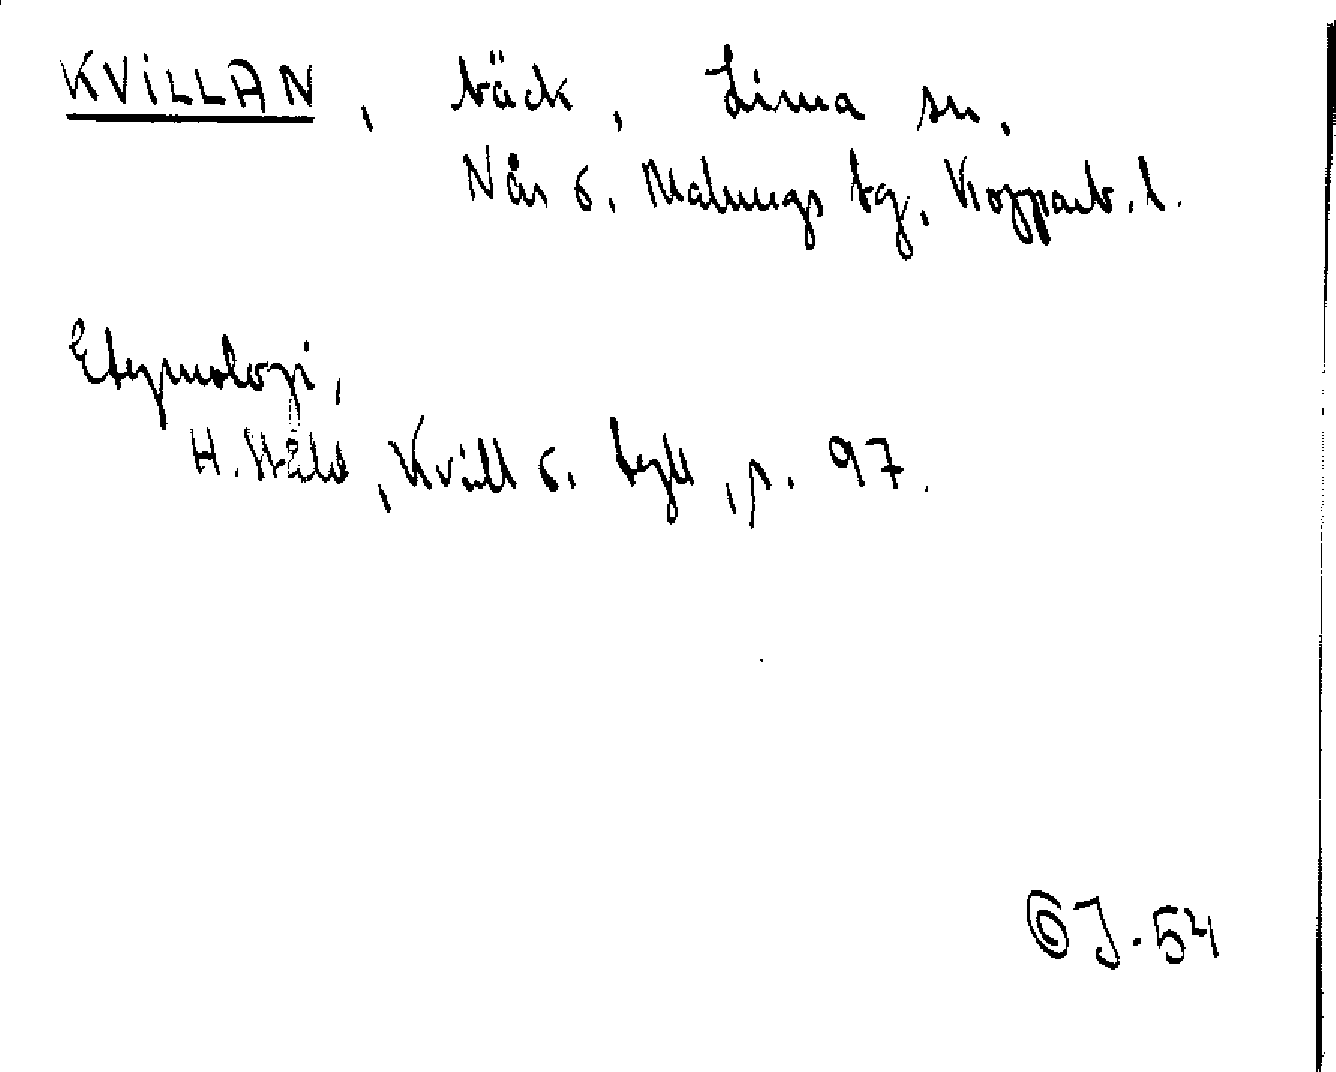 KVILLAN, bäck, Lima sn.
Nås o. Malungs tg. Kopparb. l.
Etymologi,
H. Ståhl, Kvill o. tyll, p. 97.
J. 54